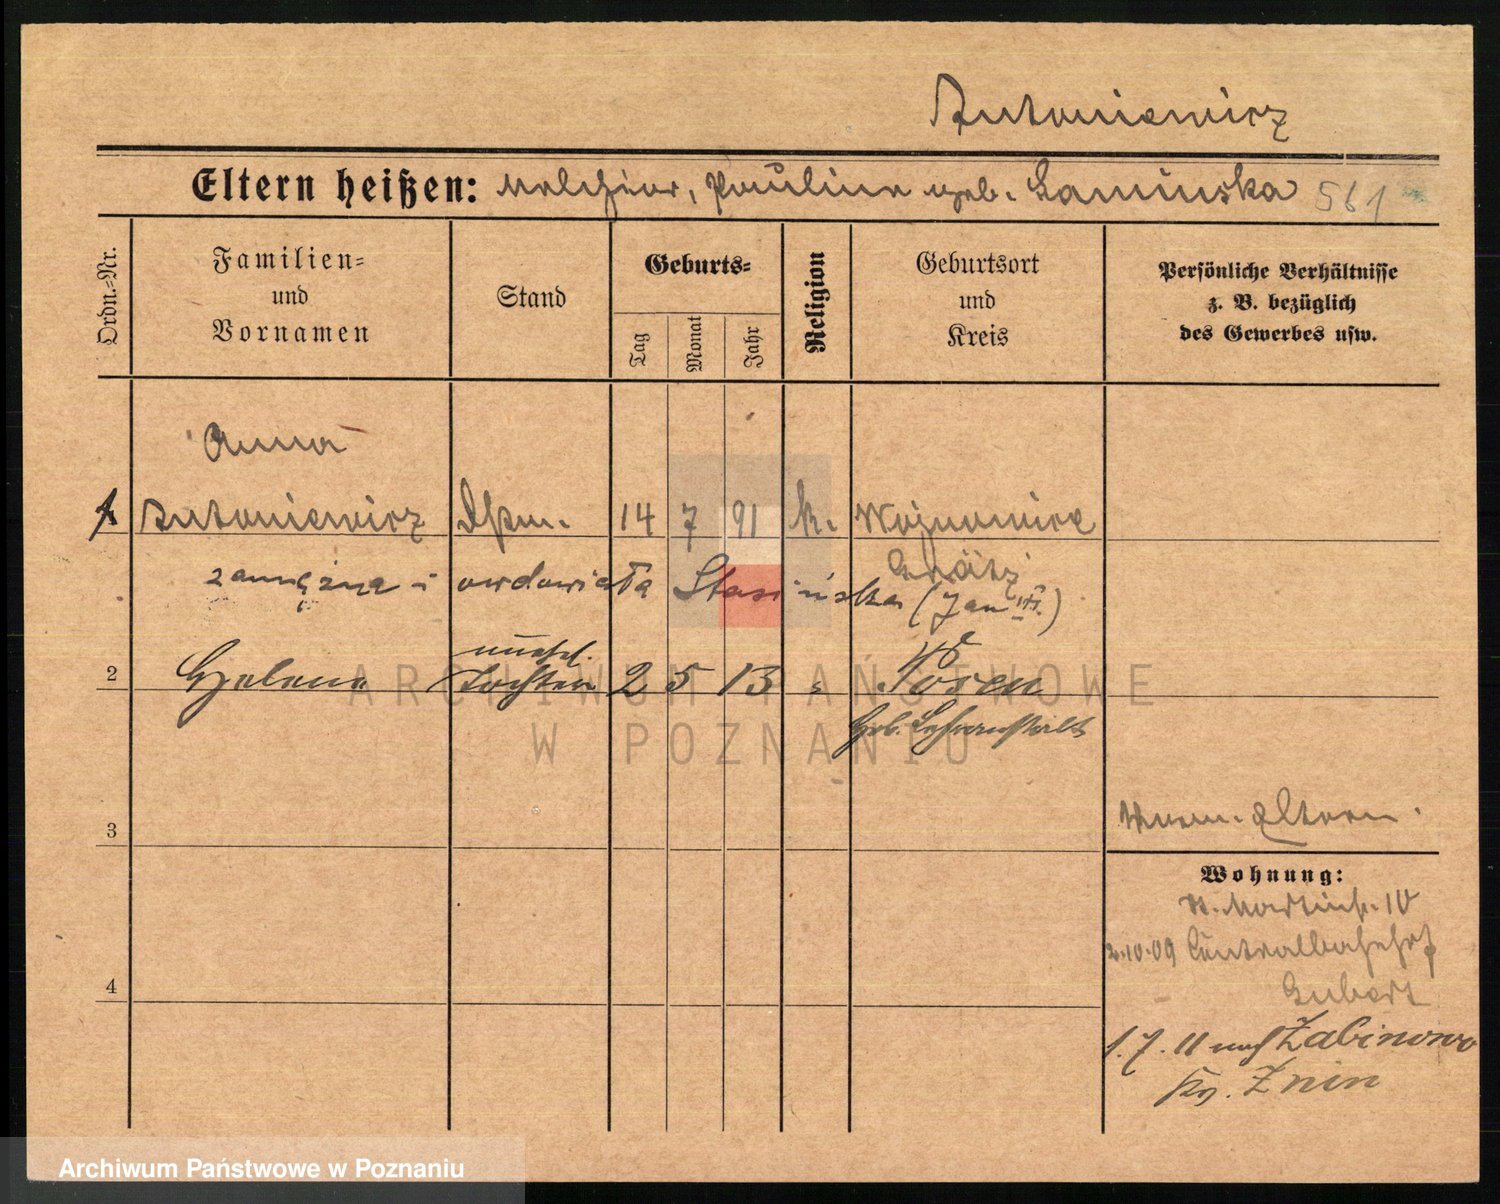 Antoniewicz
Eltern heißen: Melchior, Pauline geb. Kaminska 561
Ordn.-Nr.
Familien- und Vornamen
Stand
Geburts-
Tag
Monat
Jahr
Religion
Geburtsort und Kreis
Persönliche Verhältnisse z. B. bezüglich des Gewerbes usw.
Anna
1 Antoniewicz 14 7 91 k. Woynowice
Grätz
zamężna i owdowiała Stasińska (Jan)
unehel.
2 Helena Tochter 2 5 13 Posen
Lehranstalt
3
Eltern
Wohnung:
St. Martinstr. 10
2.10.09 Centralbahnhof
4
1.7.11 nach Zabinowo
Kr. Znin
ARCHIWUM PAŃSTWOWE
W POZNANIU
Archiwum Państwowe w Poznaniu